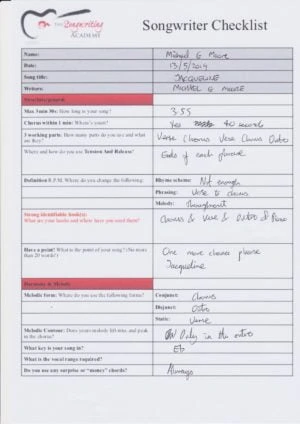 THE Songwriting
ACADEMY
Songwriter Checklist
Name: Michael G Moore
Date: 13/5/2019
Song title: JACQUELINE
Writers: MICHAEL G MOORE
Max 3min 30s: How long is your song? 3:55
Chorus within 1 min: Where's yours? Yes 40 seconds
3 working parts. How many parts do you use and what are they? Verse Chorus Verse Chorus Outro
Where and how do you use Tension And Release? Ends of each phrase
Definition R.P.M. Where do you change the following: Rhyme scheme: Not enough
Phrasing: Verse to chorus
Melody: throughout
Strong identifiable hook(s):
What are your hooks and where have you used them? Chorus & Verse & Outro &
Have a point! What is the point of your song? (No more than 20 words!) One more chance please
Jacqueline
Harmony & Melody
Melodic form: Where do you use the following forms? Conjunct: Chorus
Disjunct: Outro
Static: Verse
Melodic Contour: Does your melody lift into, and peak in the chorus? Only in the outro
What key is your song in? Eb
What is the vocal range required?
Do you use any surprise or "money" chords? Always